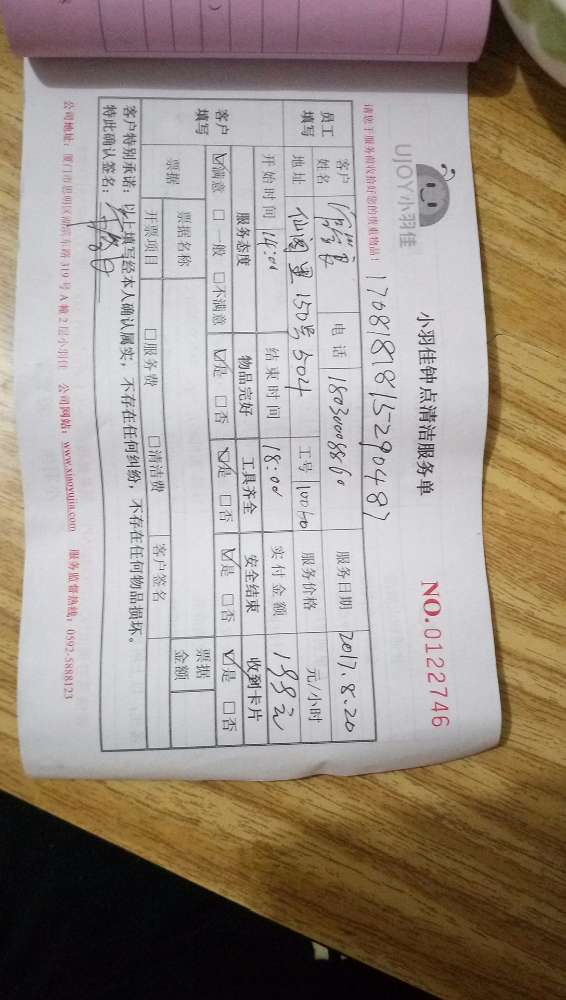 UJOY小羽佳
小羽佳钟点清洁服务单
NO.0122746
请您于服务前收拾好您的贵重物品!
170818181529048)
员工填写 客户姓名 电话 服务日期 2017.8.20
地址 仙阁里150号504 工号 10060 服务价格 元/小时
开始时间 14:00 结束时间 18:00 实付金额 188元
客户填写 服务态度 物品完好 工具齐全 安全结束 收到卡片
☑满意 □一般 □不满意 ☑是 □否 ☑是 □否 ☑是 □否 ☑是 □否
票据 票据名称 票据金额
开票项目 □服务费 □清洁费 客户签名
客户特别承诺:以上填写经本人确认属实,不存在任何纠纷,不存在任何物品损坏。
特此确认签名:
公司地址:厦门市思明区湖滨东路319号A幢2层小羽佳 公司网站:www.xiaoyujia.com 服务监督热线:0592-5888123